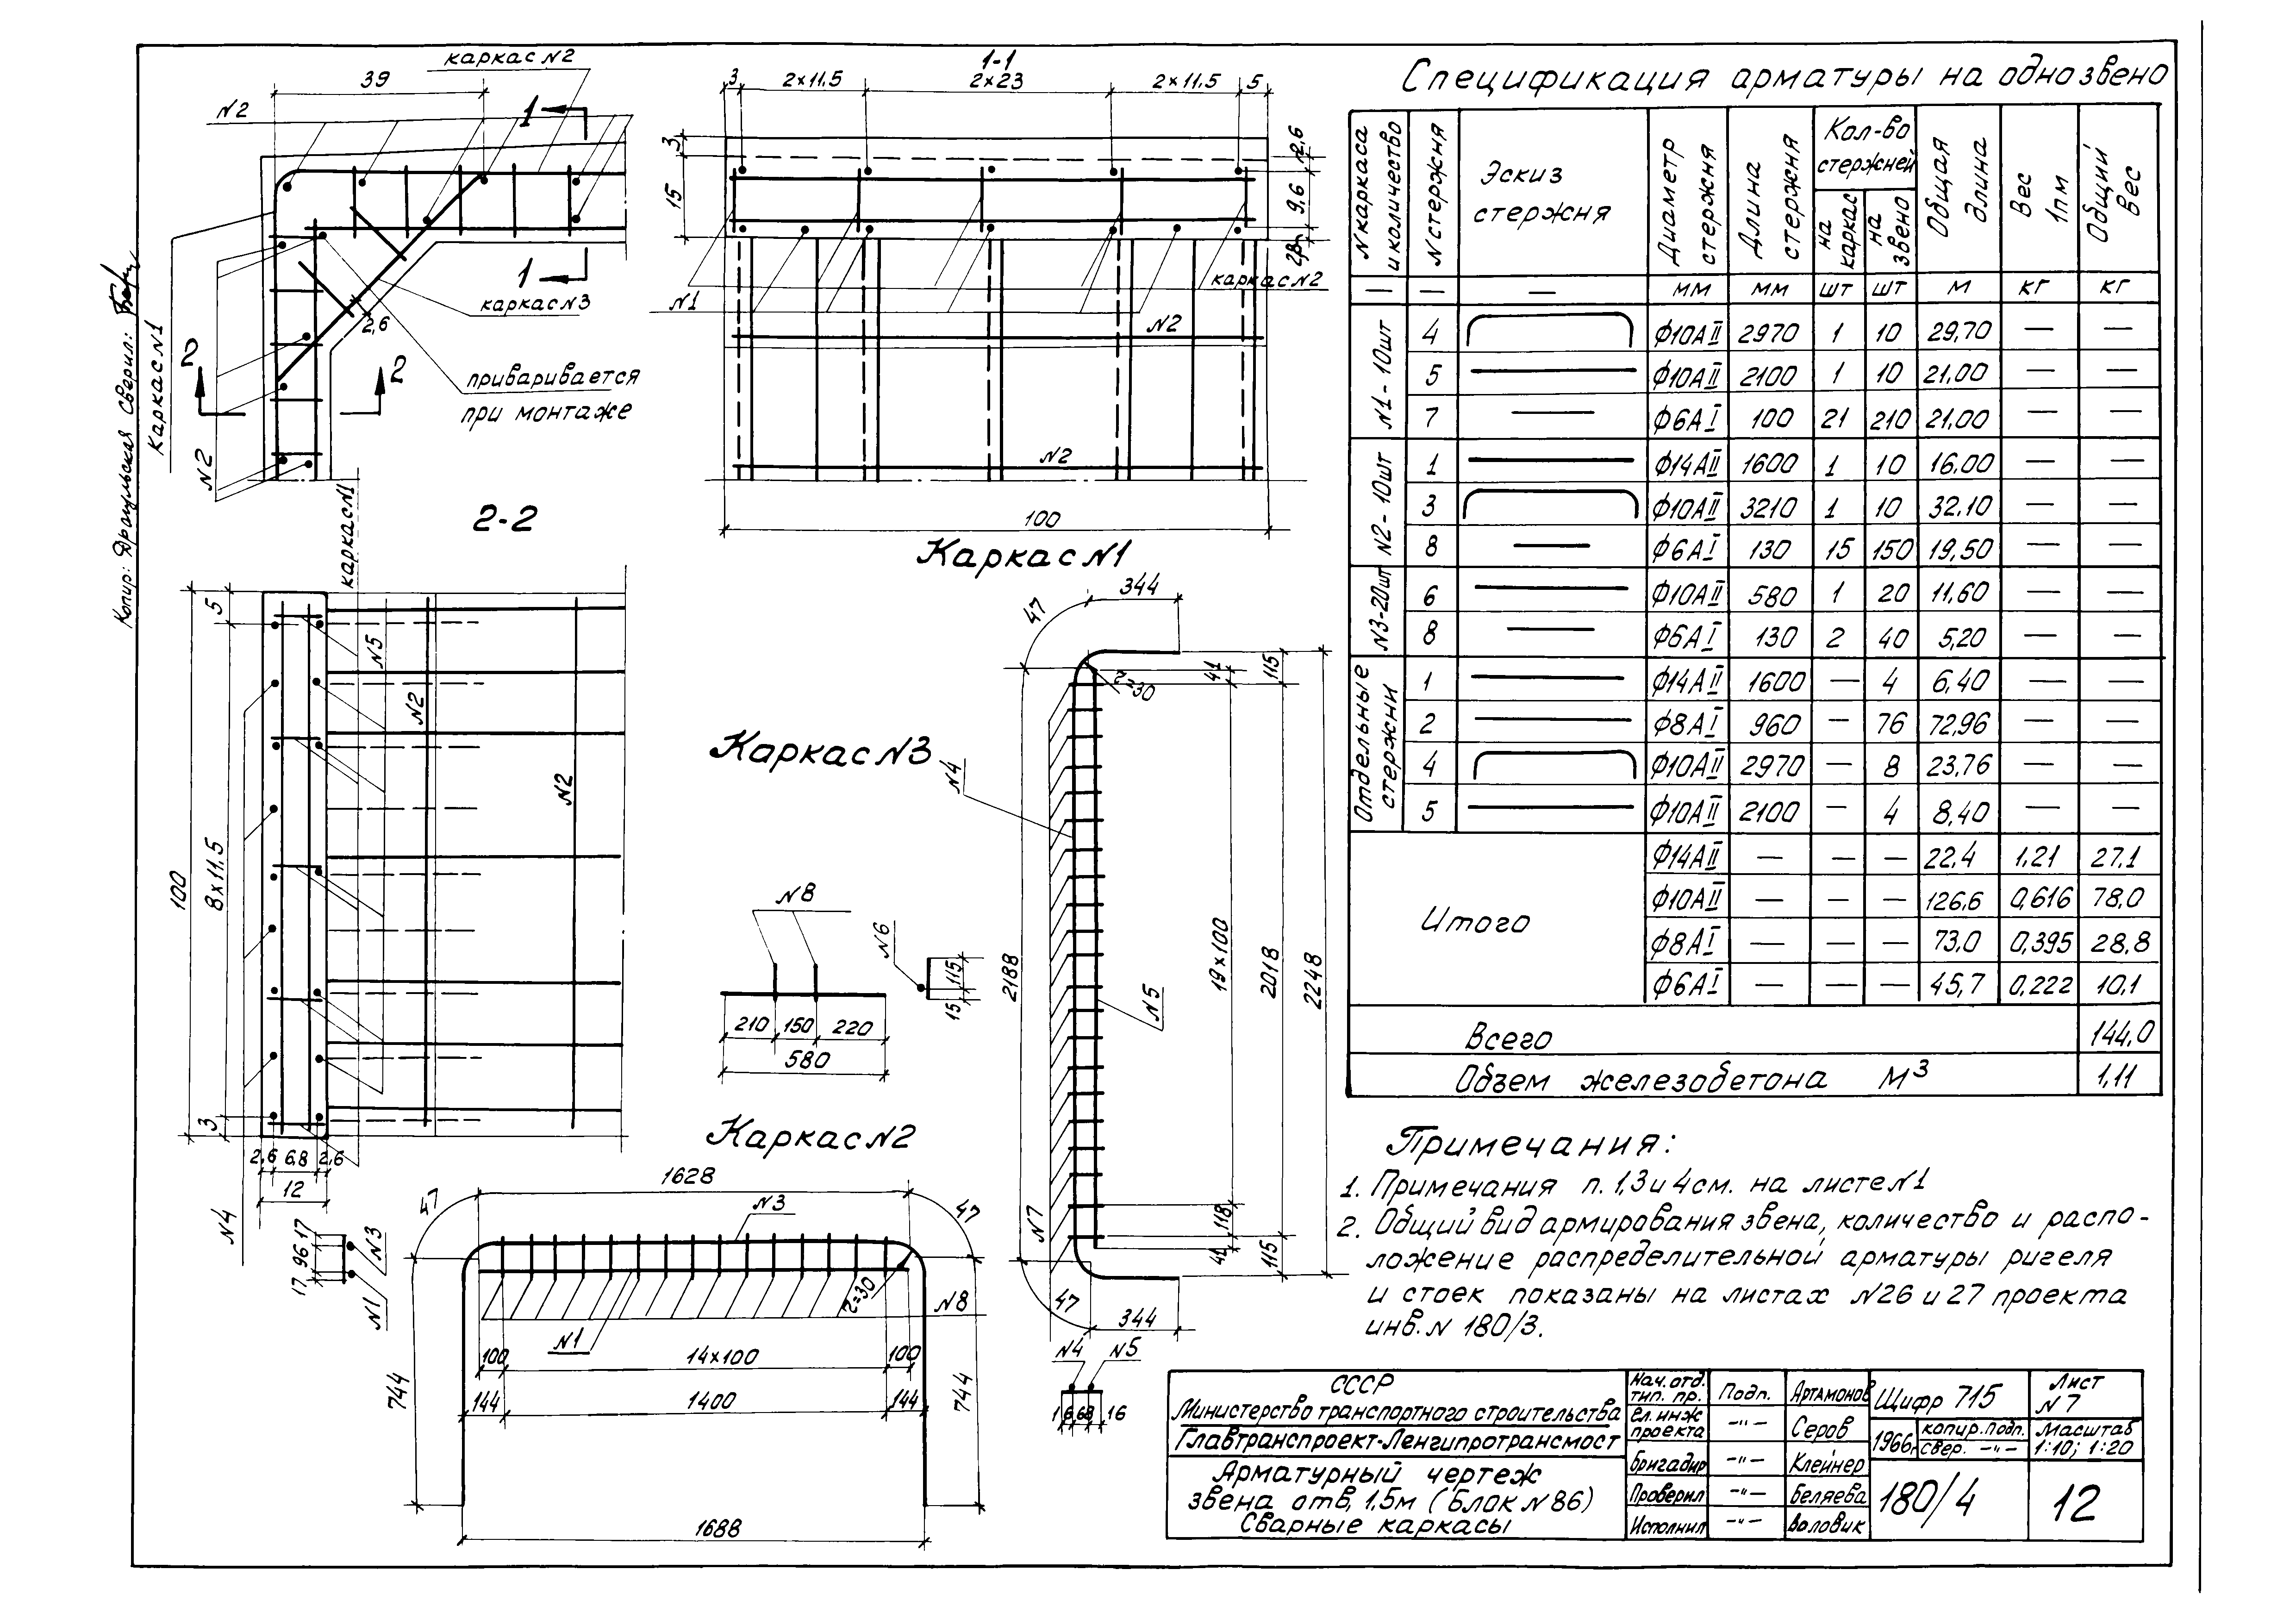 каркас N2
39
N2
1
N2
каркас N1
каркас N3
2,6
1
2
2
приваривается
при монтаже
Копир: Драульская Сверил:
1-1
3
2×11.5
2×23
2×11.5
5
3
15
2.6
9.6
каркас N2
N1
N2
N2
100
2-2
каркас N1
5
8×11,5
100
3
N5
N2
N2
2,6
6,8
2,6
12
N4
Каркас N1
344
47
41
115
r=30
N4
2188
19×100
2018
2248
N5
N7
118
41
115
47
344
N4
N5
16
68
16
Каркас N3
N8
N6
115
15
210
150
220
580
Каркас N2
1628
47
47
N3
17
96
17
N3
N1
r=30
N8
N1
100
14×100
100
144
1400
144
744
744
1688
Спецификация арматуры на одно звено
N каркаса и количество
N стержня
Эскиз стержня
Диаметр стержня
Длина стержня
Кол-во стержней
на каркас
на звено
Общая длина
Вес 1пм
Общий вес
— — — мм мм шт шт м кг кг
N1 - 10шт
4 Ф10АII 2970 1 10 29,70 — —
5 Ф10АII 2100 1 10 21,00 — —
7 Ф6АI 100 21 210 21,00 — —
N2 - 10шт
1 Ф14АII 1600 1 10 16,00 — —
3 Ф10АII 3210 1 10 32,10 — —
8 Ф6АI 130 15 150 19,50 — —
N3-20шт
6 Ф10АII 580 1 20 11,60 — —
8 Ф6АI 130 2 40 5,20 — —
Отдельные стержни
1 Ф14АII 1600 — 4 6,40 — —
2 Ф8АI 960 — 76 72,96 — —
4 Ф10АII 2970 — 8 23,76 — —
5 Ф10АII 2100 — 4 8,40 — —
Итого
Ф14АII — — — 22,4 1,21 27,1
Ф10АII — — — 126,6 0,616 78,0
Ф8АI — — — 73.0 0,395 28,8
Ф6АI — — — 45,7 0,222 10,1
Всего 144,0
Объем железобетона м³ 1,11
Примечания:
1. Примечания п. 1,3 и 4 см. на листе N1
2. Общий вид армирования звена, количество и распо-
ложение распределительной арматуры ригеля
и стоек показаны на листах N26 и 27 проекта
инв. N 180/3.
СССР
Министерство транспортного строительства
Главтранспроект-Ленгипротрансмост
Арматурный чертеж
звена отв, 1,5м (Блок N 86)
Сварные каркасы
Нач. отд. тип. пр. Подп. Артамонов
Гл. инж проекта -"- Серов
Бригадир -"- Клейнер
Проверил -"- Беляева
Исполнил -"- Воловик
Шифр 715
Лист N 7
1966г
копир. Подп.
свер. -"-
Масштаб
1:10; 1:20
180/4
12